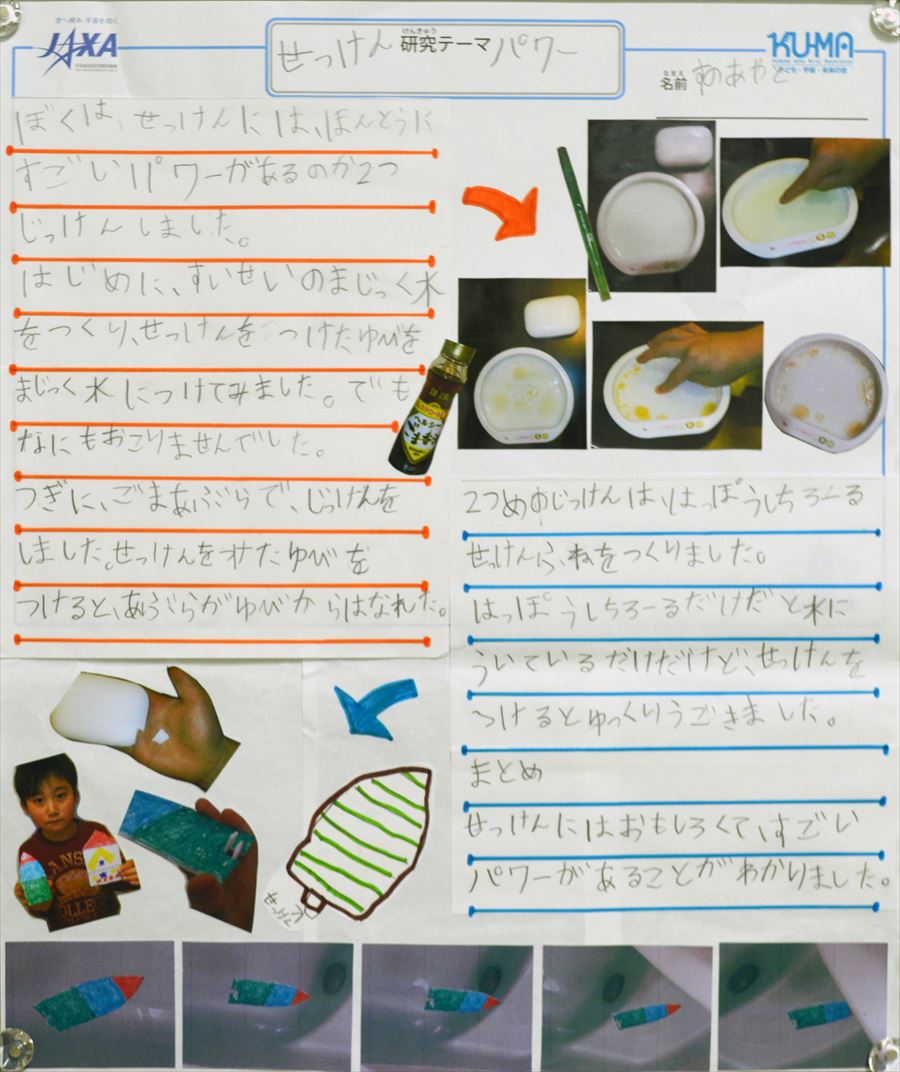 空へ挑み、宇宙を拓く
JAXA
せっけん
けんきゅう
研究テーマ
パワー
KU-MA
子ども・宇宙・未来の会
なまえ
名前
ぼくは、せっけんには、ほんとうに
すごいパワーがあるのか2つ
じっけんしました。
はじめに、すいせいのまじっく水
をつくり、せっけんをつけたゆびを
まじっく水につけてみました。でも
なにもおこりませんでした。
つぎに、ごまあぶらで、じっけんを
しました。せっけんをつけたゆびを
つけると、あぶらがゆびからはなれた。
2つめのじっけんは、はっぽうしちろーる
せっけんふねをつくりました。
はっぽうしちろーるだけだと水に
ういているだけだけど、せっけんを
つけるとゆっくりうごきました。
まとめ
せっけんにはおもしろくて、すごい
パワーがあることがわかりました。